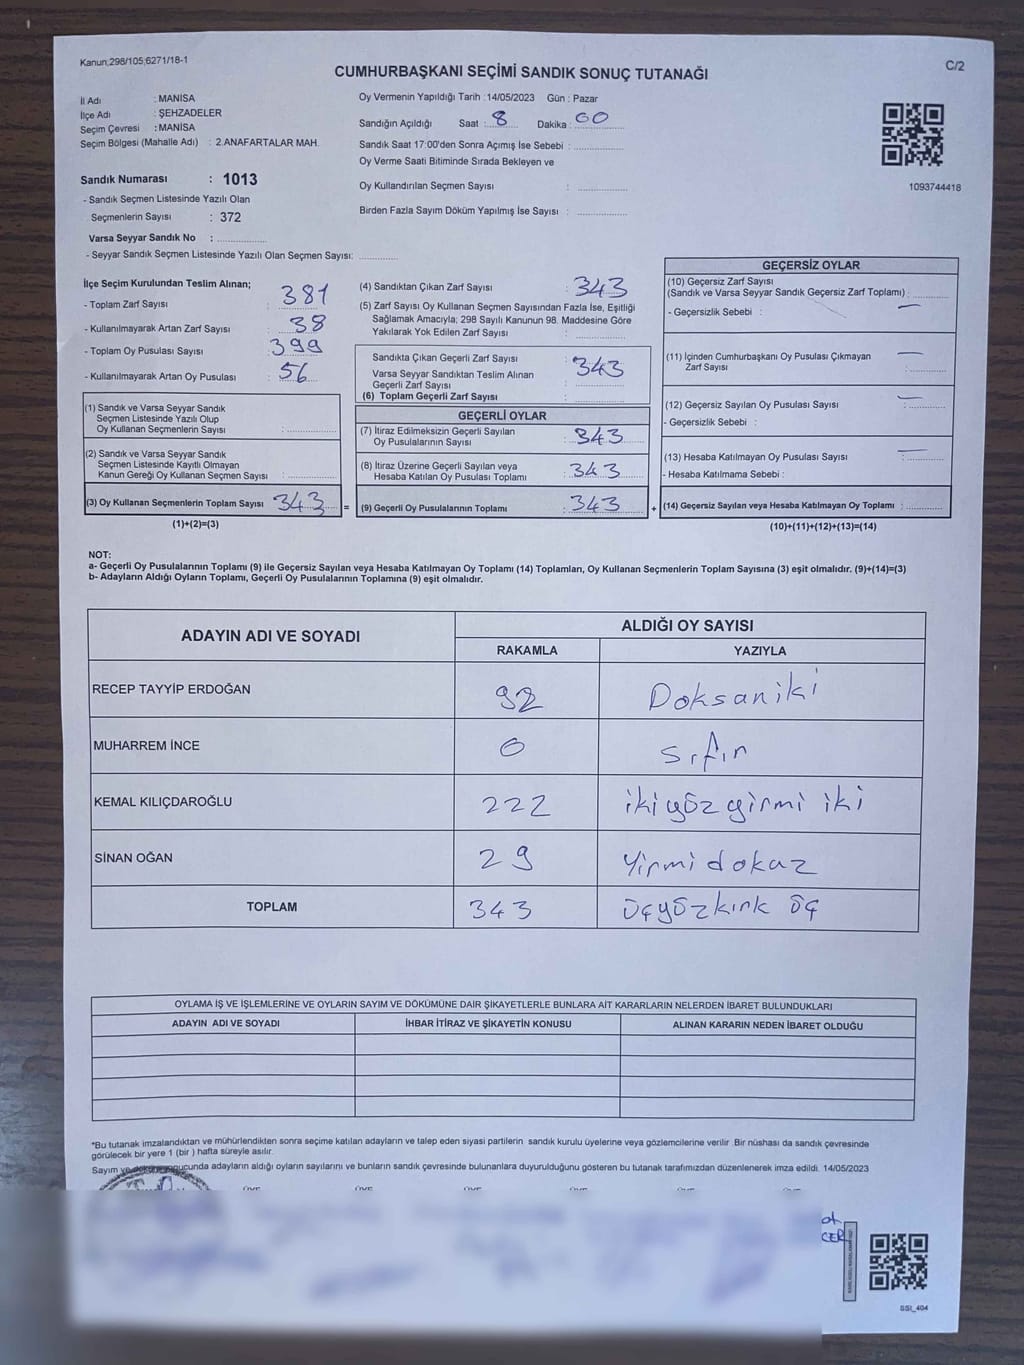 Kanun;298/105;6271/18-1
C/2
CUMHURBAŞKANI SEÇİMİ SANDIK SONUÇ TUTANAĞI
İl Adı : MANİSA
İlçe Adı : ŞEHZADELER
Seçim Çevresi : MANİSA
Seçim Bölgesi (Mahalle Adı) : 2.ANAFARTALAR MAH.
Sandık Numarası : 1013
- Sandık Seçmen Listesinde Yazılı Olan
Seçmenlerin Sayısı : 372
Varsa Seyyar Sandık No :
- Seyyar Sandık Seçmen Listesinde Yazılı Olan Seçmen Sayısı:
Oy Vermenin Yapıldığı Tarih : 14/05/2023 Gün : Pazar
Sandığın Açıldığı Saat : 8 Dakika : 00
Sandık Saat 17:00'den Sonra Açımış İse Sebebi :
Oy Verme Saati Bitiminde Sırada Bekleyen ve
Oy Kullandırılan Seçmen Sayısı :
Birden Fazla Sayım Döküm Yapılmış İse Sayısı :
1093744418
İlçe Seçim Kurulundan Teslim Alınan;
- Toplam Zarf Sayısı : 381
- Kullanılmayarak Artan Zarf Sayısı : 38
- Toplam Oy Pusulası Sayısı : 399
- Kullanılmayarak Artan Oy Pusulası : 56
(1) Sandık ve Varsa Seyyar Sandık
Seçmen Listesinde Yazılı Olup
Oy Kullanan Seçmenlerin Sayısı :
(2) Sandık ve Varsa Seyyar Sandık
Seçmen Listesinde Kayıtlı Olmayan
Kanun Gereği Oy Kullanan Seçmen Sayısı :
(3) Oy Kullanan Seçmenlerin Toplam Sayısı : 343 =
(1)+(2)=(3)
(4) Sandıktan Çıkan Zarf Sayısı : 343
(5) Zarf Sayısı Oy Kullanan Seçmen Sayısından Fazla İse, Eşitliği
Sağlamak Amacıyla; 298 Sayılı Kanunun 98. Maddesine Göre
Yakılarak Yok Edilen Zarf Sayısı :
Sandıkta Çıkan Geçerli Zarf Sayısı : 343
Varsa Seyyar Sandıktan Teslim Alınan
Geçerli Zarf Sayısı :
(6) Toplam Geçerli Zarf Sayısı :
GEÇERLİ OYLAR
(7) İtiraz Edilmeksizin Geçerli Sayılan
Oy Pusulalarının Sayısı : 343
(8) İtiraz Üzerine Geçerli Sayılan veya
Hesaba Katılan Oy Pusulası Toplamı : 343
(9) Geçerli Oy Pusulalarının Toplamı : 343 +
GEÇERSİZ OYLAR
(10) Geçersiz Zarf Sayısı
(Sandık ve Varsa Seyyar Sandık Geçersiz Zarf Toplamı) :
- Geçersizlik Sebebi : —
(11) İçinden Cumhurbaşkanı Oy Pusulası Çıkmayan —
Zarf Sayısı :
(12) Geçersiz Sayılan Oy Pusulası Sayısı : —
- Geçersizlik Sebebi :
(13) Hesaba Katılmayan Oy Pusulası Sayısı : —
- Hesaba Katılmama Sebebi :
(14) Geçersiz Sayılan veya Hesaba Katılmayan Oy Toplamı :
(10)+(11)+(12)+(13)=(14)
NOT:
a- Geçerli Oy Pusulalarının Toplamı (9) ile Geçersiz Sayılan veya Hesaba Katılmayan Oy Toplamı (14) Toplamları, Oy Kullanan Seçmenlerin Toplam Sayısına (3) eşit olmalıdır. (9)+(14)=(3)
b- Adayların Aldığı Oyların Toplamı, Geçerli Oy Pusulalarının Toplamına (9) eşit olmalıdır.
ADAYIN ADI VE SOYADI ALDIĞI OY SAYISI
RAKAMLA YAZIYLA
RECEP TAYYİP ERDOĞAN 92 Doksaniki
MUHARREM İNCE 0 sıfır
KEMAL KILIÇDAROĞLU 222 ikiyözyirmi iki
SİNAN OĞAN 29 Yirmidokaz
TOPLAM 343 öçyözkırk öç
OYLAMA İŞ VE İŞLEMLERİNE VE OYLARIN SAYIM VE DÖKÜMÜNE DAİR ŞİKAYETLERLE BUNLARA AİT KARARLARIN NELERDEN İBARET BULUNDUKLARI
ADAYIN ADI VE SOYADI İHBAR İTİRAZ VE ŞİKAYETİN KONUSU ALINAN KARARIN NEDEN İBARET OLDUĞU
*Bu tutanak imzalandıktan ve mühürlendikten sonra seçime katılan adayların ve talep eden siyasi partilerin sandık kurulu üyelerine veya gözlemcilerine verilir. Bir nüshası da sandık çevresinde
görülecek bir yere 1 (bir ) hafta süreyle asılır.
Sayım ve döküm sonucunda adayların aldığı oyların sayılarını ve bunların sandık çevresinde bulunanlara duyurulduğunu gösteren bu tutanak tarafımızdan düzenlenerek imza edildi. 14/05/2023
SSI_404